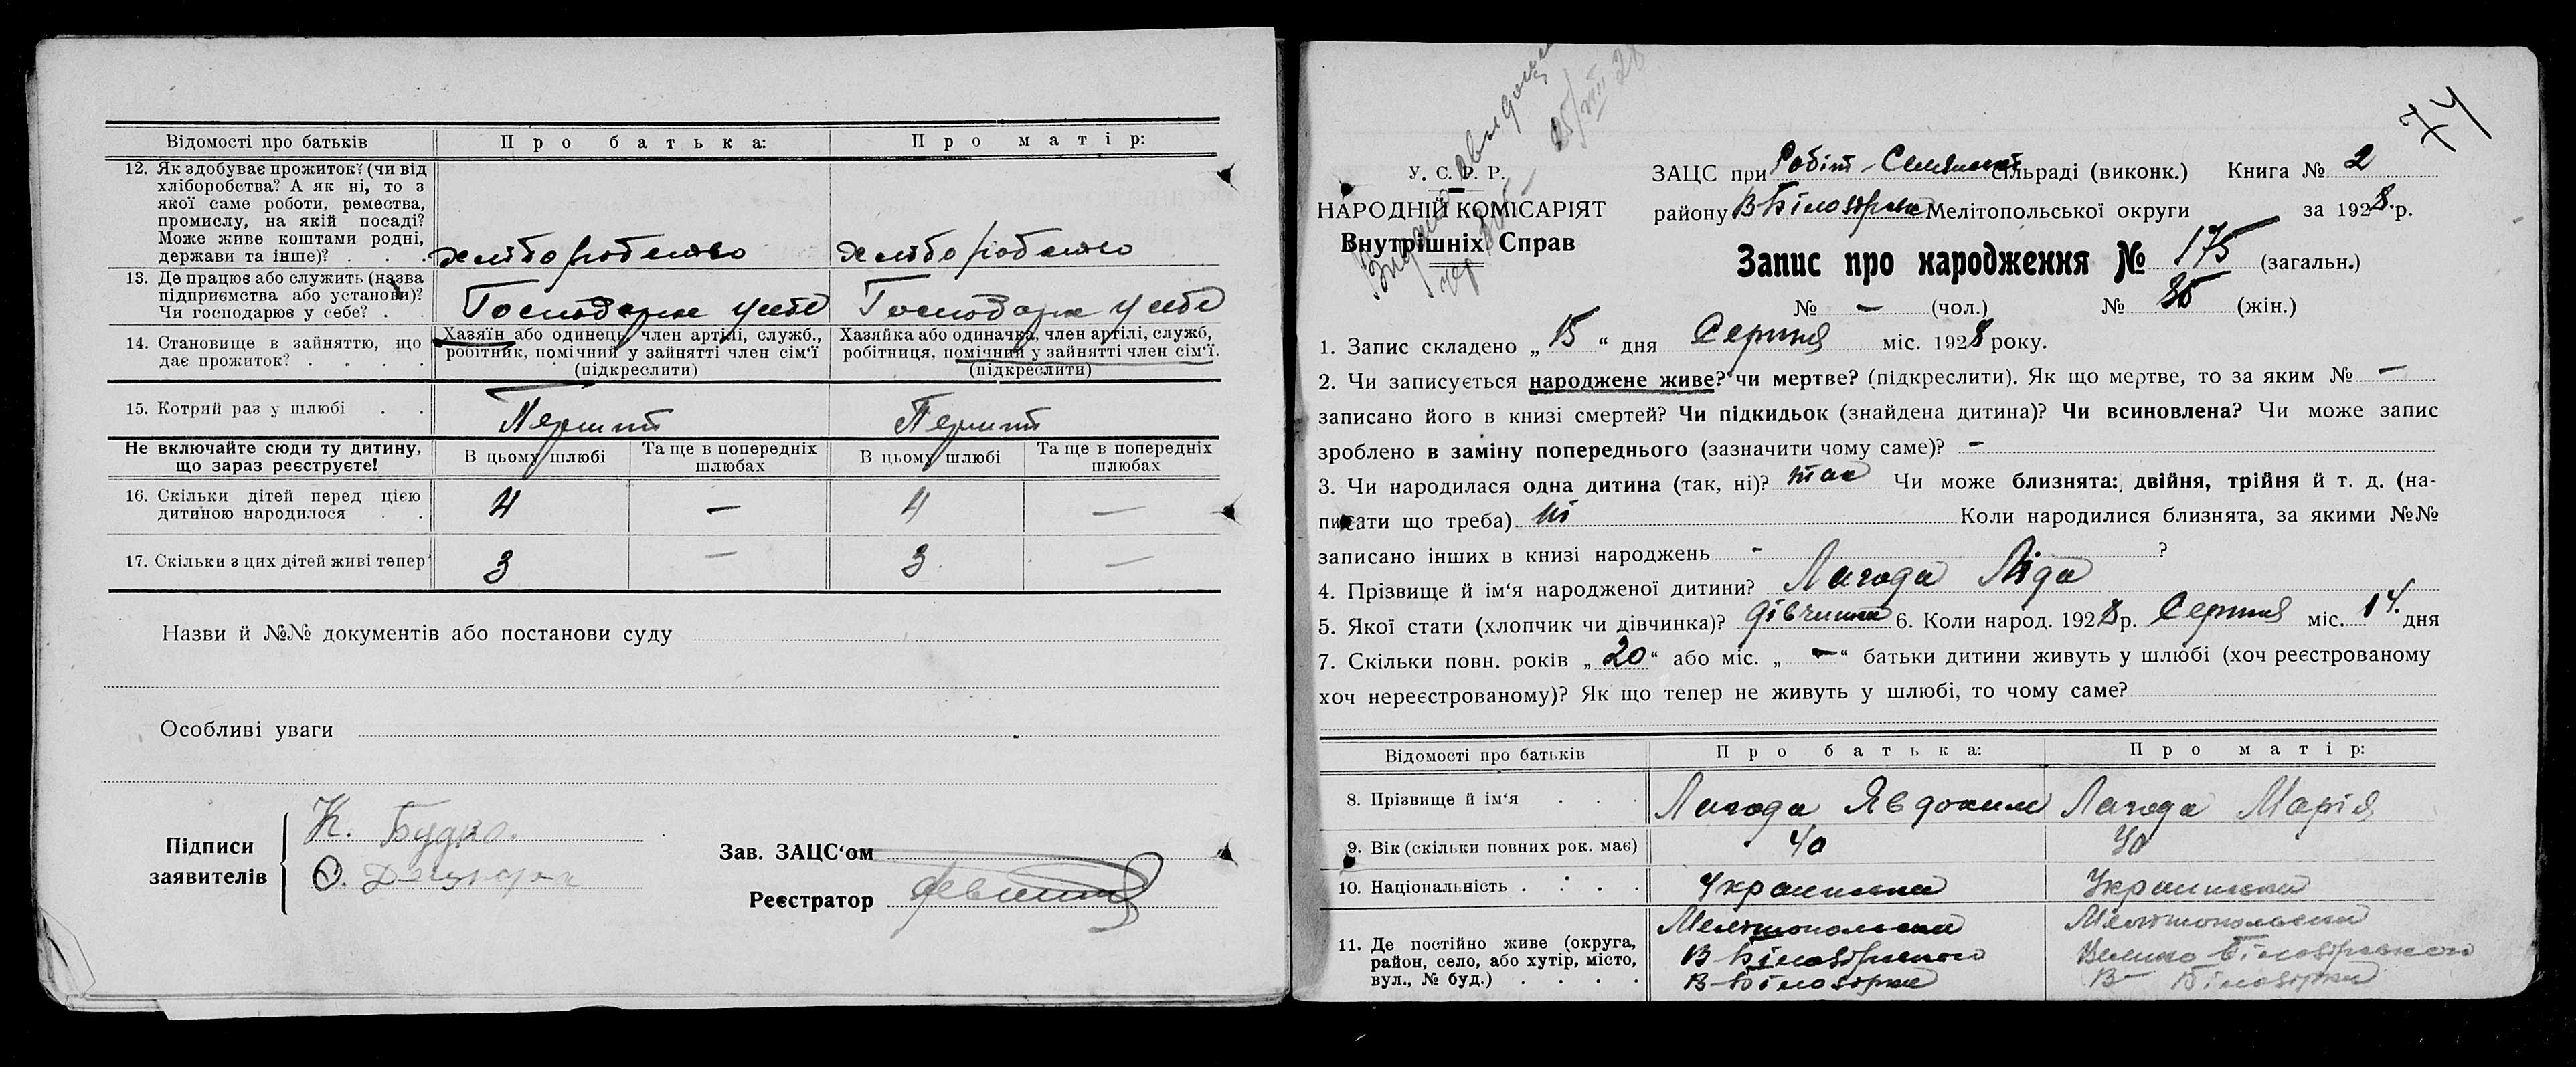 Відомості про батьків
Про батька:
Про матір:
12. Як здобуває прожиток? (чи від
хліборобства? А як ні, то з
якої саме роботи, ремества,
промислу, на якій посаді?
Може живе коштами родні,
держави та інше)? . . .
хліборобство
хліборобство
13. Де працює або служить (назва
підприємства або установи)?
Чи господарює у себе? . .
Господарює у себе
Господарює у себе
14. Становище в зайняттю, що
дає прожиток? . . . .
Хазяїн або одинець, член артілі, служб.,
робітник, помічний у зайнятті член сім'ї
(підкреслити)
Хазяйка або одиначка, член артілі, служб,
робітниця, помічний у зайнятті член сім'ї.
(підкреслити)
15. Котрий раз у шлюбі . .
Перший
Перший
Не включайте сюди ту дитину,
що зараз реєструєте!
В цьому шлюбі
Та ще в попередніх
шлюбах
В цьому шлюбі
Та ще в попередніх
шлюбах
16. Скільки дітей перед цією
дитиною народилося . .
4 — 4 —
17. Скільки з цих дітей живі тепер
3 — 3 —
Назви й №№ документів або постанови суду
Особливі уваги
Підписи
заявителів
К. Будко.
О.
Зав. ЗАЦС'ом
Реєстратор
74
25/VIII 28
У. С. Р. Р.
НАРОДНІЙ КОМІСАРІЯТ
Внутрішніх Справ
ЗАЦС при Робіт-Селянськ сільраді (виконк.) Книга № 2
району В-Білозірка Мелітопольської округи за 1928 р.
Запис про народження № 175 (загальн.)
№ — (чол.) № 86 (жін.)
1. Запис складено „ 15 “ дня Серпня міс. 1928 року.
2. Чи записується народжене живе? чи мертве? (підкреслити). Як що мертве, то за яким № —
записано його в книзі смертей? Чи підкидьок (знайдена дитина)? Чи всиновлена? Чи може запис
зроблено в заміну попереднього (зазначити чому саме)? -
3. Чи народилася одна дитина (так, ні)? так Чи може близнята: двійня, трійня й т. д. (на-
писати що треба) ні Коли народилися близнята, за якими №№
записано інших в книзі народжень - ?
4. Прізвище й ім'я народженої дитини? Лагода Ліда
5. Якої стати (хлопчик чи дівчинка)? дівчинка 6. Коли народ. 1928 р. Серпня міс. 14. дня
7. Скільки повн. років „ 20 “ або міс. „ — “ батьки дитини живуть у шлюбі (хоч реєстрованому
хоч нереєстрованому)? Як що тепер не живуть у шлюбі, то чому саме?
Відомості про батьків
Про батька:
Про матір:
8. Прізвище й ім'я . . .
Лагода Явдоким
Лагода Марія
9. Вік (скільки повних рок. має)
40
40
10. Національність . . . .
Українська
Українська
11. Де постійно живе (округа,
район, село, або хутір, місто,
вул., № буд.) . . . .
Мелітопольська
В-Білозірського
В-Білозірка
Мелітопольська
Велико Білозірського
В-Білозірка